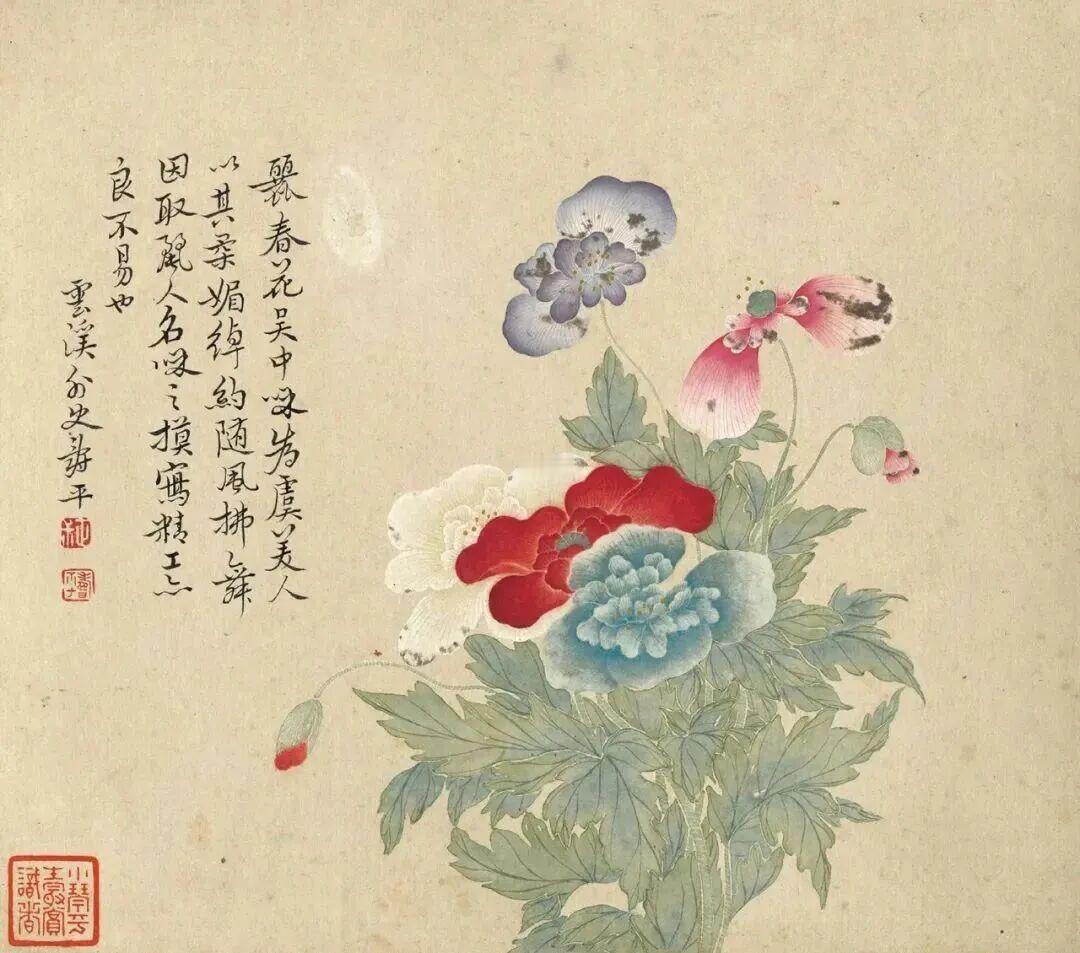 麗春花吳中呼為虞美人
以其柔媚綽約随風拂舞
因取麗人名呼之摸寫精工亦
良不易也
雲溪外史壽平